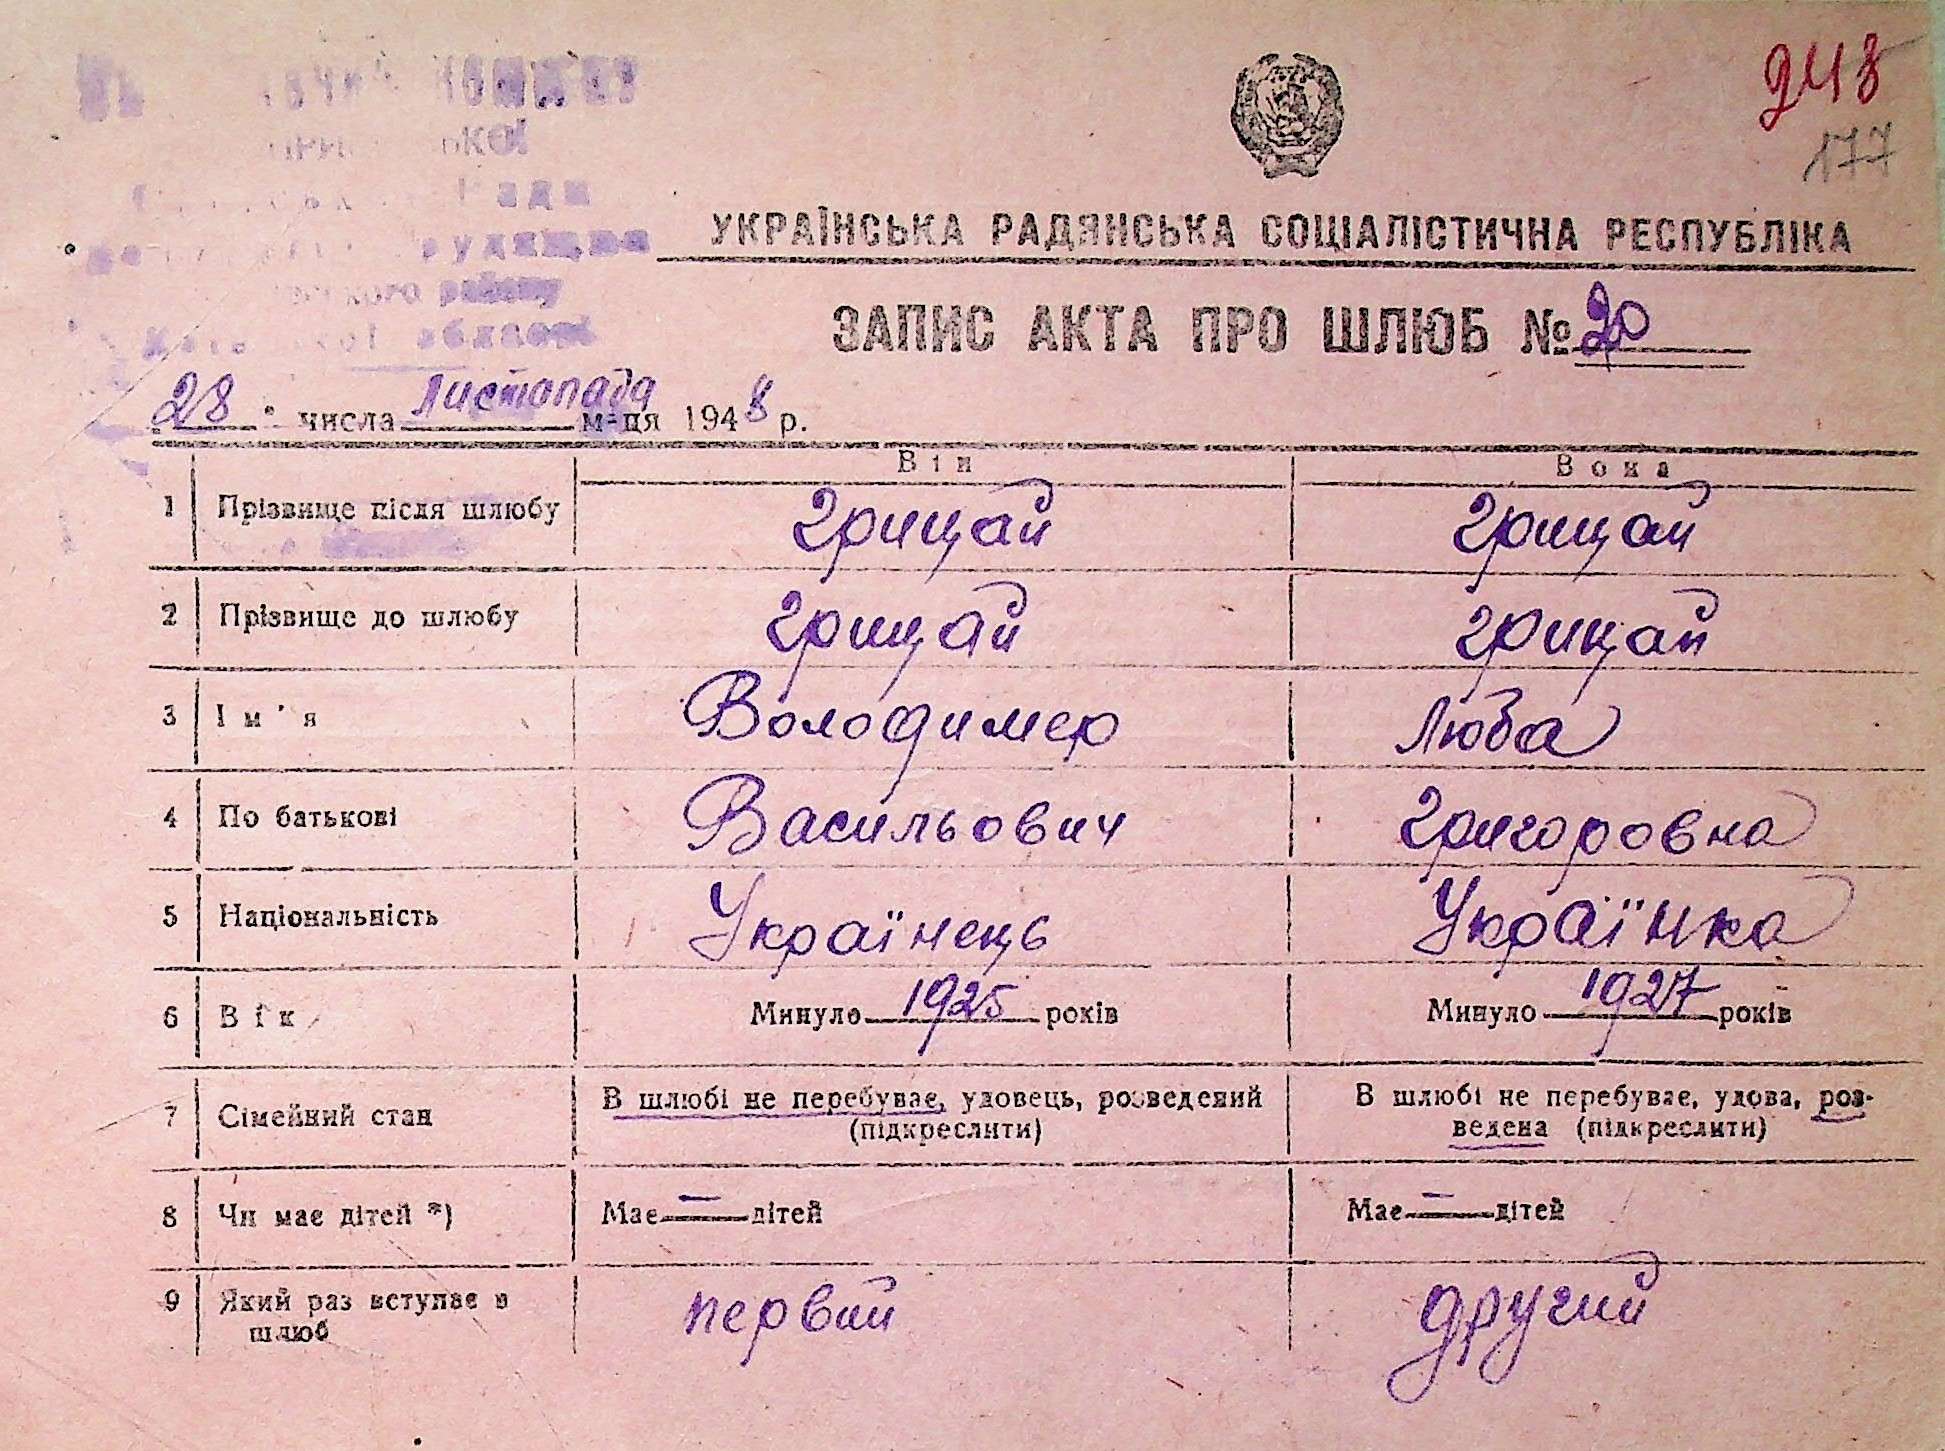 248
177
Ради
району
області
УКРАЇНСЬКА РАДЯНСЬКА СОЦІАЛІСТИЧНА РЕСПУБЛІКА
ЗАПИС АКТА ПРО ШЛЮБ № 20
"28" числа Листопада м-ця 1948 р.
Він Вона
1 Прізвище після шлюбу Грицай Грицай
2 Прізвище до шлюбу Грицай Грицай
3 Ім'я Володимер Люба
4 По батькові Васильович Григоровна
5 Національність Українець Українка
6 Вік Минуло 1925 років Минуло 1927 років
7 Сімейний стан В шлюбі не перебуває, удовець, розведений (підкреслити) В шлюбі не перебуває, удова, роз-
ведена (підкреслити)
8 Чи має дітей *) Має — дітей Має — дітей
9 Який раз вступає в шлюб первий другий